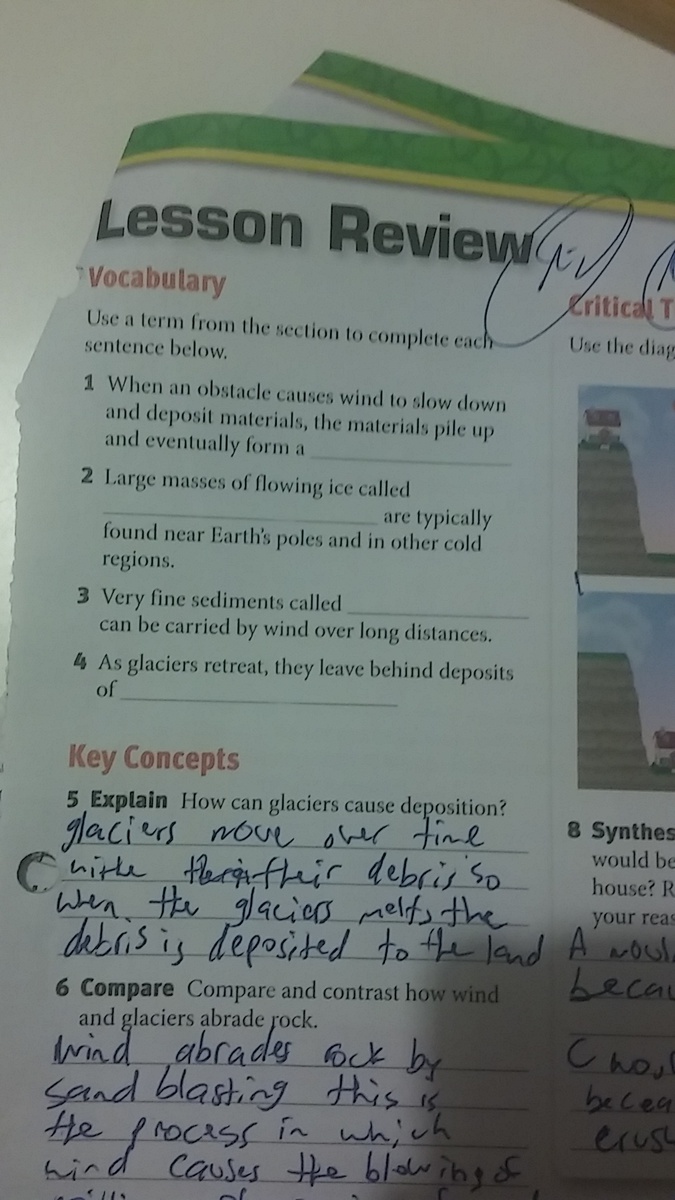 Lesson Review
Vocabulary
Use a term from the section to complete each
sentence below.
1 When an obstacle causes wind to slow down
and deposit materials, the materials pile up
and eventually form a
2 Large masses of flowing ice called
are typically
found near Earth's poles and in other cold
regions.
3 Very fine sediments called
can be carried by wind over long distances.
4 As glaciers retreat, they leave behind deposits
of
Key Concepts
5 Explain How can glaciers cause deposition?
glaciers move over time
their debris so
when the glaciers melts the
debris is deposited to the land
6 Compare Compare and contrast how wind
and glaciers abrade rock.
Wind abrades rock by
sand blasting this is
the process in which
wind causes the blowing of
Critical T
Use the diag
8 Synthes
would be
house? R
your reas
A woul
becau
C wo
becea
crush